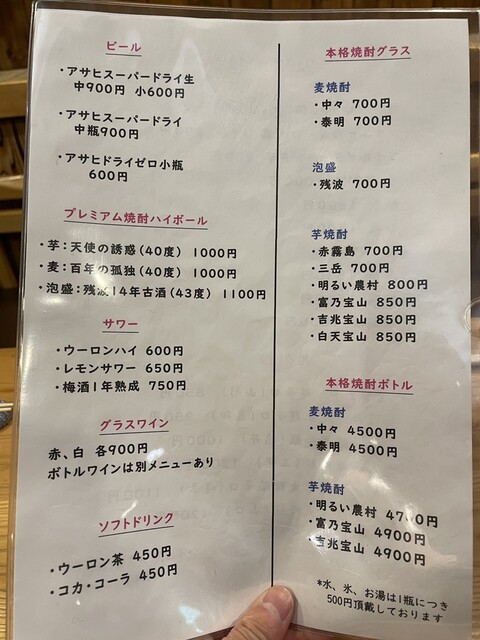 ビール
・アサヒスーパードライ生
中900円 小600円
・アサヒスーパードライ
中瓶900円
・アサヒドライゼロ小瓶
600円
プレミアム焼酎ハイボール
・芋:天使の誘惑(40度) 1000円
・麦:百年の孤独(40度) 1000円
・泡盛:残波14年古酒(43度) 1100円
サワー
・ウーロンハイ 600円
・レモンサワー 650円
・梅酒1年熟成 750円
グラスワイン
赤、白 各900円
ボトルワインは別メニューあり
ソフトドリンク
・ウーロン茶 450円
・コカ・コーラ 450円
本格焼酎グラス
麦焼酎
・中々 700円
・泰明 700円
泡盛
・残波 700円
芋焼酎
・赤霧島 700円
・三岳 700円
・明るい農村 800円
・富乃宝山 850円
・吉兆宝山 850円
・白天宝山 850円
本格焼酎ボトル
麦焼酎
・中々 4500円
・泰明 4500円
芋焼酎
・明るい農村 4700円
・富乃宝山 4900円
・吉兆宝山 4900円
*水、氷、お湯は1瓶につき
500円頂戴しております